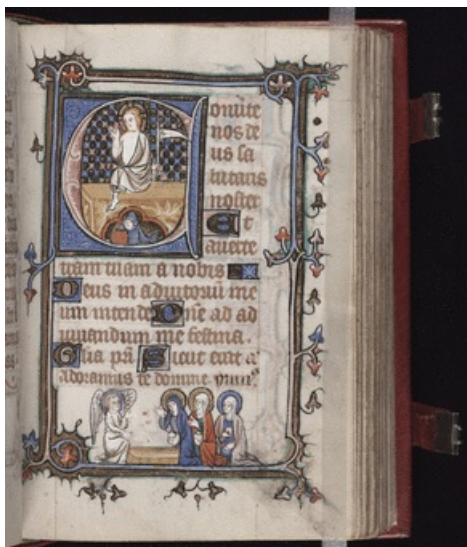 Conũte
nos de
us sa
lutaris
noster
Et
auerte
iram tuam a nobis
Deus in adiutoriũ me
um intende Dñe ad ad
iuuandum me festina.
Glia pr̃i Sicut erat
adoramus te domine